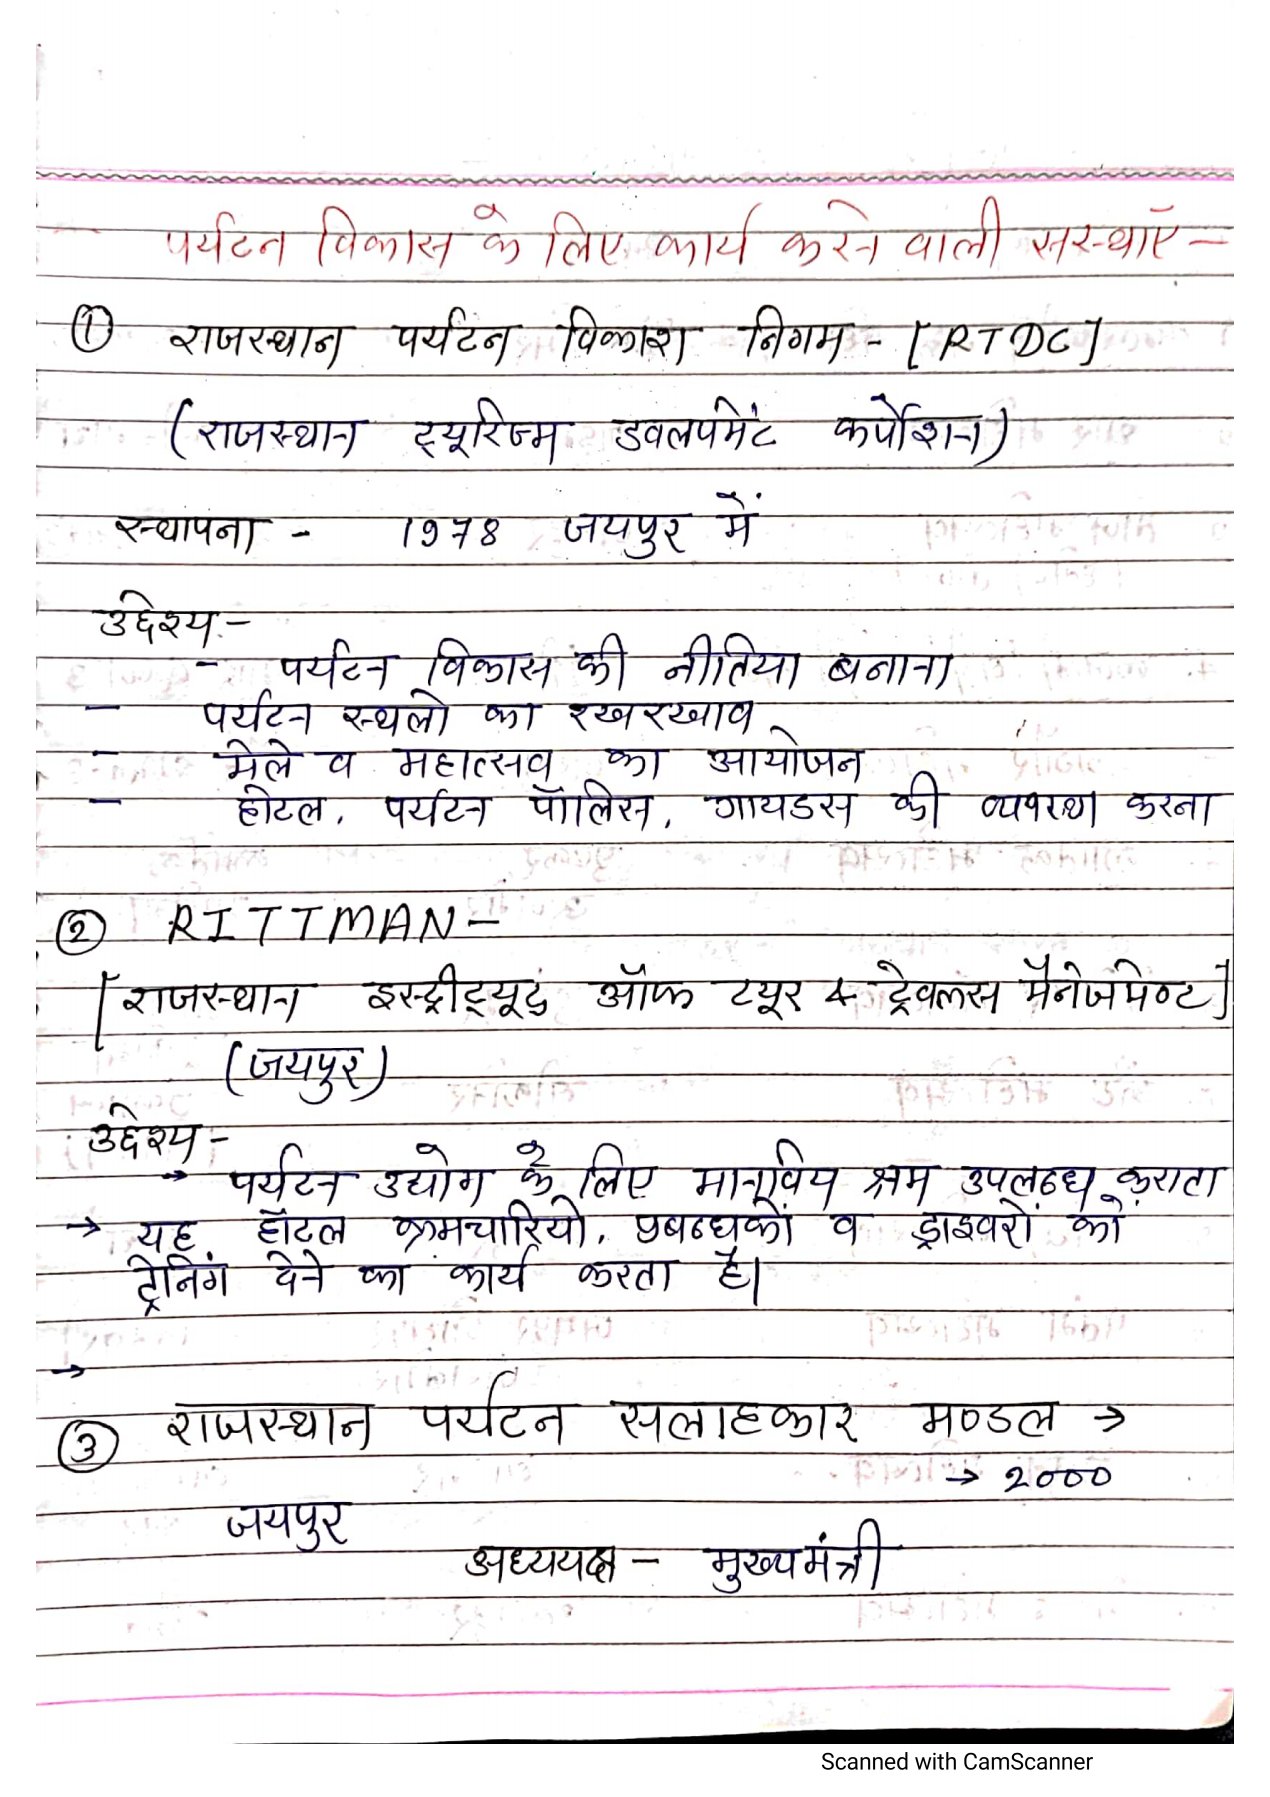 पर्यटन विकास के लिए कार्य करने वाली सस्थाएँ -
① राजस्थान पर्यटन विकाश निगम - [RTDC]
(राजस्थान ट्यूरिज्म डवलपमेंट कर्पोशन)
स्थापना - 1978 जयपुर में
उद्देश्य -
- पर्यटन विकास की नीतिया बनाना
- पर्यटन स्थलो का रखरखाव
- मेले व महात्सव का आयोजन
- होटल, पर्यटन पॉलिस, गायडस की व्यवस्था करना
② RITTMAN -
[राजस्थान इस्ट्रीट्यूट ऑफ टयूर & ट्रेवलस मैनेजमेण्ट]
(जयपुर)
उद्देश्य -
→ पर्यटन उद्योग के लिए मानविय श्रम उपलब्ध कराता
→ यह हॉटल क्रमचारियो, प्रबन्धकों व ड्राइवरों को
ट्रेनिंग देने का कार्य करता है।
→
③ राजस्थान पर्यटन सलाहकार मण्डल →
→ 2000
जयपुर
अध्ययक्ष - मुख्यमंत्री
Scanned with CamScanner